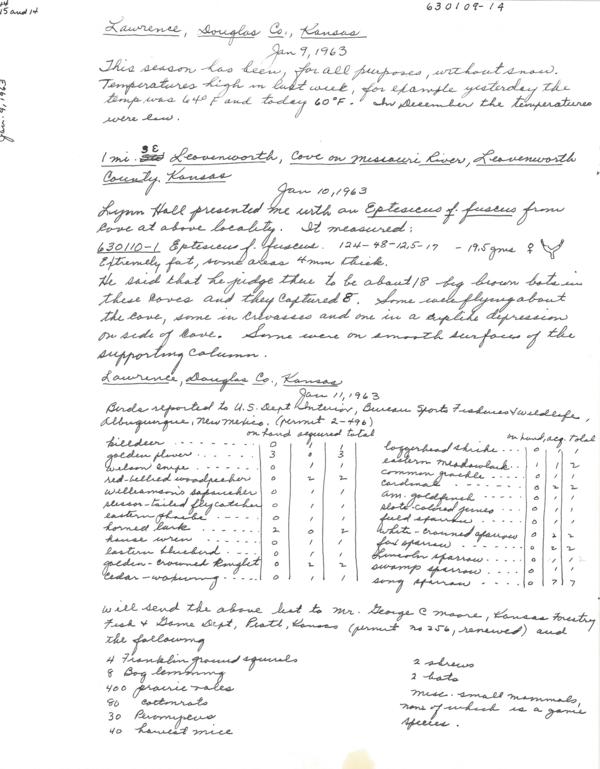 15 and 14
630109-14
Jan. 9, 1963
Lawrence, Douglas Co., Kansas
Jan 9, 1963
This season has been, for all purposes, without snow.
Temperatures high in last week, for example yesterday the
temp was 64°F and today 60°F. In December the temperatures
were low.
1 mi. SE Leavenworth, Cove on Missouri River, Leavenworth
County, Kansas
Jan 10, 1963
Lynn Hall presented me with an Eptesicus f. fuscus from
Cove at above locality. It measured:
630110-1 Eptesicus f. fuscus. 124-48-12.5-17 - 19.5 gms ♀
Extremely fat, some areas 4 mm thick.
He said that he judge there to be about 18 big brown bats in
these coves and they captured 8. Some were flying about
the cove, some in crevasses and one in a cuplike depression
on side of cove. Some were on smooth surfaces of the
supporting column.
Lawrence, Douglas Co., Kansas
Jan 11, 1963
Birds reported to U.S. Dept Interior, Bureau Sports Fisheries & Wildlife,
Albuquerque, New Mexico. (permit 2-496)
on hand acquired total
killdeer - - - - - - - 0 1 1
golden plover - - - - - 3 0 3
wilson snipe - - - - - 0 1 1
red-bellied woodpecker 0 2 2
williamson's sapsucker 0 1 1
scissor-tailed flycatcher 0 1 1
eastern phoebe 0 1 1
horned lark - - - - - 2 0 2
house wren - - - - - 0 1 1
eastern bluebird - - - - 0 1 1
golden-crowned kinglet 0 2 2
cedar-waxwing - - - - 0 1 1
on hand, acq. total
loggerhead shrike - - - 0 1 1
eastern meadowlark - - 1 1 2
common grackle - - - - 0 1 1
cardinal - - - - - 0 2 2
am. goldfinch - - - - 0 1 1
slate-colored junco - - - - 0 1 1
field sparrow - - - - 0 1 1
white-crowned sparrow - - 0 2 2
fox sparrow - - - - - 0 2 2
Lincoln sparrow - - - - 0 1 1
swamp sparrow - - - - 0 1 1
song sparrow - - - - 0 7 7
Will send the above list to Mr. George C Moore, Kansas Forestry
Fish & Game Dept, Pratt, Kansas (permit no 256, renewed) and
the following
4 Franklin ground squirrels
8 Bog lemming
400 prairie voles
80 cottonrats
30 Peromyscus
40 harvest mice
2 shrews
2 bats
misc. small mammals,
none of which is a game
species.